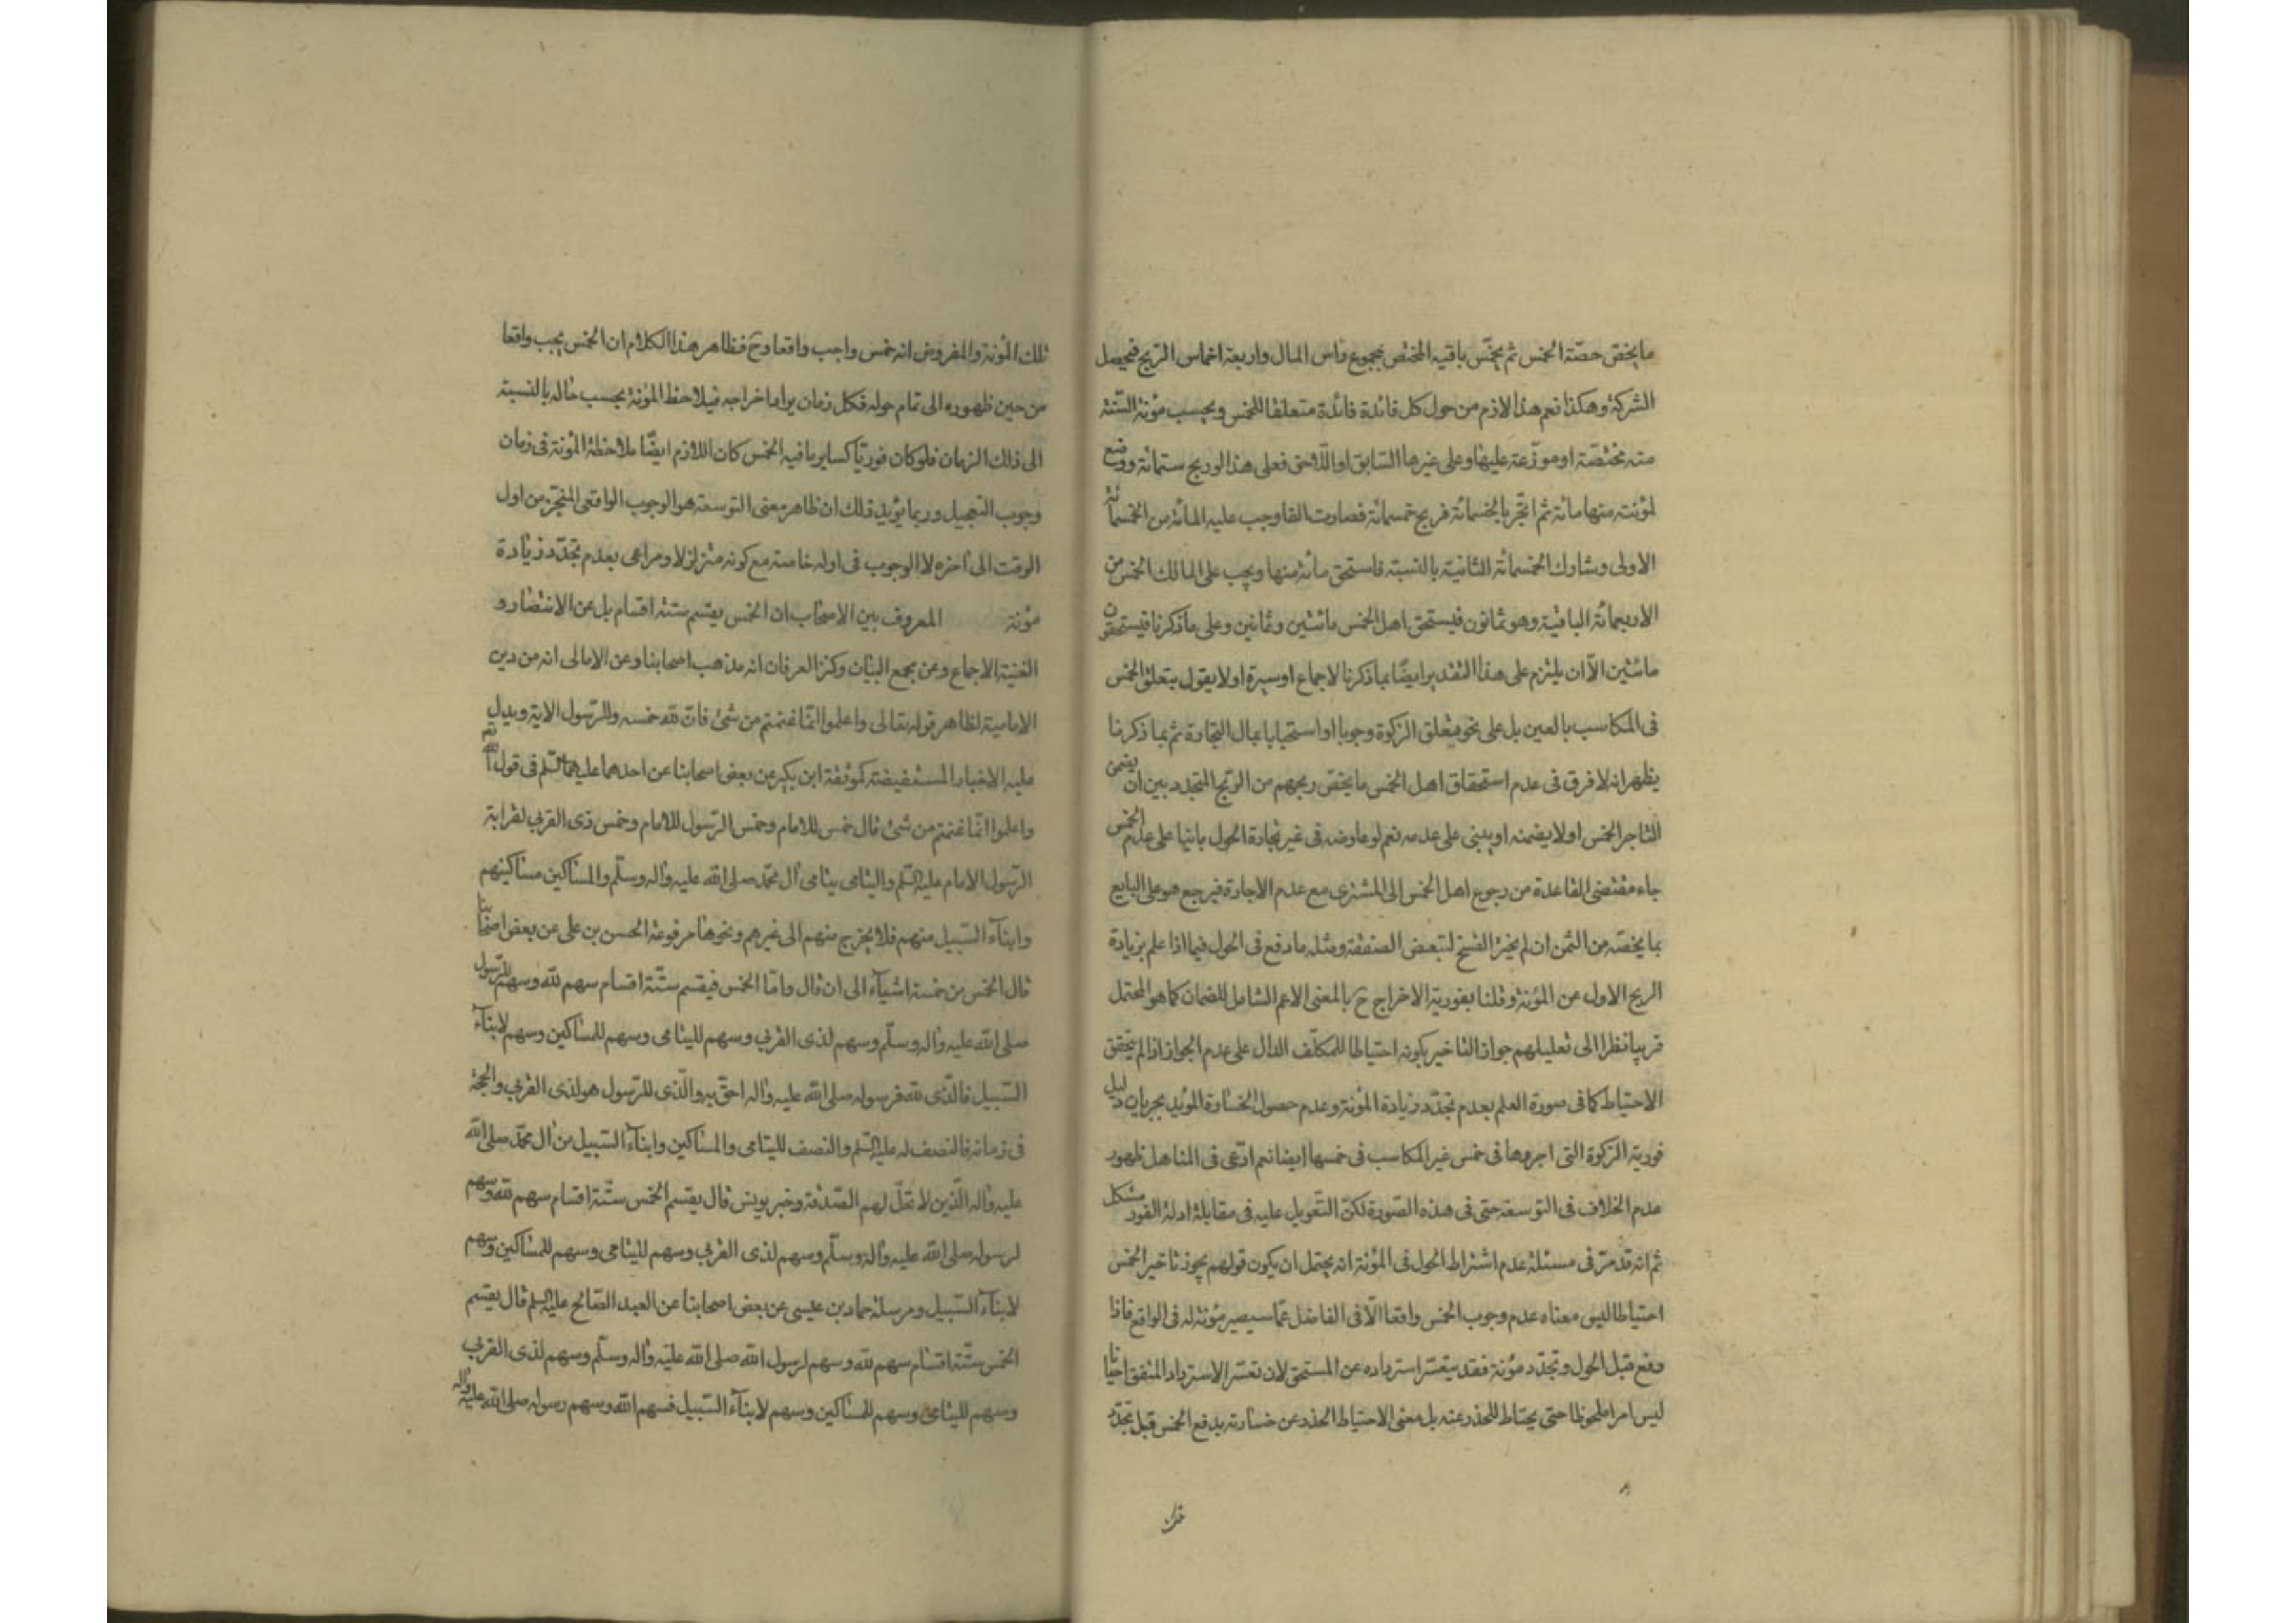 ما يخصّ حصّة الخمس ثم يخمّس باقيه المختص بمجموع راس المال واربعة اخماس الربح فيحصل
الشركة وهكذا نعم هذا لازم من حول كل فائدة فائدة متعلقا للخمس ويحسب مؤنة السّنة
منه مختصّة او موزّعة عليها وعلى غيرها السّابق او اللّاحق فعلى هذا لو ربح ستمائة ووضع
لمؤنته منها مائة ثم اتّجر بالخمسمائة فربح خمسمائة فصارت الفا وجب عليه المائة من الخمسمائة
الاولى وشارك الخمسمائة الثانية بالنسبة فاستحق مائة منها ويجب على المالك الخمس من
الاربعمائة الباقية وهو ثمانون فيستحق اهل الخمس مائتين وثمانين وعلى ما ذكرنا فيستحقون
مائتين الّا ان يلتزم على هذا التقدير ايضًا بما ذكرنا لاجماع او سيرة او لا يقول بتعلق الخمس
فى المكاسب بالعين بل على نحو متعلق الزكوة وجوبا او استحبابا بمال التجارة ثم بما ذكرنا
يظهر انه لا فرق فى عدم استحقاق اهل الخمس ما يخصّ ربحهم من الربح المتجدد بين ان يضمن
التاجر الخمس او لا يضمنه او يبنى على عدمه نعم لو عاوضه فى غير تجارة الحول بانيا على عدم الخمس
جاء مقتضى القاعدة من رجوع اهل الخمس الى المشترى مع عدم الاجازة فيرجع هو على البايع
بما يخصّه من الثمن ان لم يختر الفسخ لتبعض الصفقة ومثله ما دفع فى الحول فيما اذا علم بزيادة
الربح الاول عن المؤنة وقلنا بفورية الاخراج ح بالمعنى الاعم الشامل للضمان كما هو المحتمل
قريبا نظرا الى تعليلهم جواز التاخير بكونه احتياطا للمكلّف الدال على عدم الجواز اذا لم يتحقق
الاحتياط كما فى صورة العلم بعدم تجدّد زيادة المؤنة وعدم حصول الخسارة المؤيد بجريان دليل
فورية الزكوة التى اجروها فى خمس غير المكاسب فى خمسها ايضا نعم ادّعى فى المناهل ظهور
عدم الخلاف فى التوسعة حتى فى هذه الصّورة لكنّ التّعويل عليه فى مقابلة ادلة الفور مشكل
ثم انه قد مرّ فى مسئلة عدم اشتراط الحول فى المؤنة انه يحتمل ان يكون قولهم يجوز تاخير الخمس
احتياطا ليس معناه عدم وجوب الخمس واقعا الّا فى الفاضل عمّا سيصير مؤنة له فى الواقع فاذا
دفع قبل الحول وتجدّد مؤنة فقد يتعسّر استرداده عن المستحق لان تعسّر الاسترداد المتفق احيانا
ليس امرا ملحوظا حتى يحتاط للحذر عنه بل معنى الاحتياط الحذر عن خسارته بدفع الخمس قبل تجدّد
تلك المؤنة والمفروض انه خمس واجب واقعا وح فظاهر هذا الكلام ان الخمس يجب واقعا
من حين ظهوره الى تمام حوله فكل زمان يراد اخراجه فيلاحظ المؤنة بحسب حاله بالنسبة
الى ذلك الزمان فلو كان فوريّا كساير ما فيه الخمس كان اللازم ايضًا ملاحظة المؤنة فى زمان
وجوب التعجيل وربما يؤيد ذلك ان ظاهر معنى التوسعة هو الوجوب الواقعى المنجّز من اول
الوقت الى اخره لا الوجوب فى اوله خاصة مع كونه متزلزلا ومراعى بعدم تجدّد زيادة
مؤنة المعروف بين الاصحاب ان الخمس يقسم ستة اقسام بل عن الانتصار و
الغنية الاجماع وعن مجمع البيان وكنز العرفان انه مذهب اصحابنا وعن الامالى انه من دين
الامامية لظاهر قوله تعالى واعلموا انّما غنمتم من شئ فانّ للّه خمسه وللرّسول الاية ويدل
عليه الاخبار المستفيضة كموثقة ابن بكير عن بعض اصحابنا عن احدهما عليهما السّلم فى قول اللّه تعم
واعلموا انّما غنمتم من شئ قال خمس للامام وخمس الرّسول للامام وخمس ذى القربى لقرابة
الرّسول الامام عليه السّلم واليتامى يتامى آل محمّد صلى اللّه عليه واله وسلّم والمساكين مساكينهم
وابناء السّبيل منهم فلا يخرج منهم الى غيرهم ونحوها مرفوعة الحسن بن على عن بعض اصحابنا
قال الخمس من خمسة اشياء الى ان قال وامّا الخمس فيقسم ستّة اقسام سهم للّه وسهم للرّسول
صلى اللّه عليه واله وسلّم وسهم لذى القربى وسهم لليتامى وسهم للمساكين وسهم لابناء
السّبيل فالّذى للّه فرسوله صلى اللّه عليه واله احقّ به والّذى للرّسول هو لذى القربى والحجة
فى زمانه فالنصف له عليه السّلم والنصف لليتامى والمساكين وابناء السّبيل من آل محمّد صلى اللّه
عليه واله الّذين لا تحلّ لهم الصّدقة وخبر يونس قال يقسم الخمس ستّة اقسام سهم للّه وسهم
لرسوله صلى اللّه عليه واله وسلّم وسهم لذى القربى وسهم لليتامى وسهم للمساكين وسهم
لابناء السّبيل ومرسلة حماد بن عيسى عن بعض اصحابنا عن العبد الصّالح عليه السلم قال يقسم
الخمس ستّة اقسام سهم للّه وسهم لرسول اللّه صلى اللّه عليه واله وسلّم وسهم لذى القربى
وسهم لليتامى وسهم للمساكين وسهم لابناء السّبيل فسهم اللّه وسهم رسوله صلى اللّه عليه واله